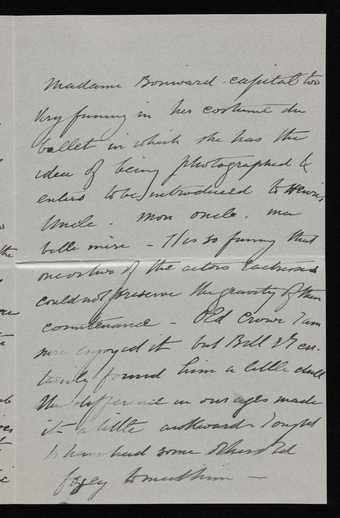 Madame Bonward capital too
Very funny in her costume de
ballet in which she has the
idea of being photographed &
enters to be introduced to Henri's
Uncle. Mon oncle. ma
belle mère - It is so funny that
one or two of the actors
could not preserve the gravity of their
countenance - Old Crowe I am
sure enjoyed it but Bell & I cer-
tainly found him a little dull
The difference in our ages made
it a little awkward I ought
to have had some other old
fogey to meet him -
the